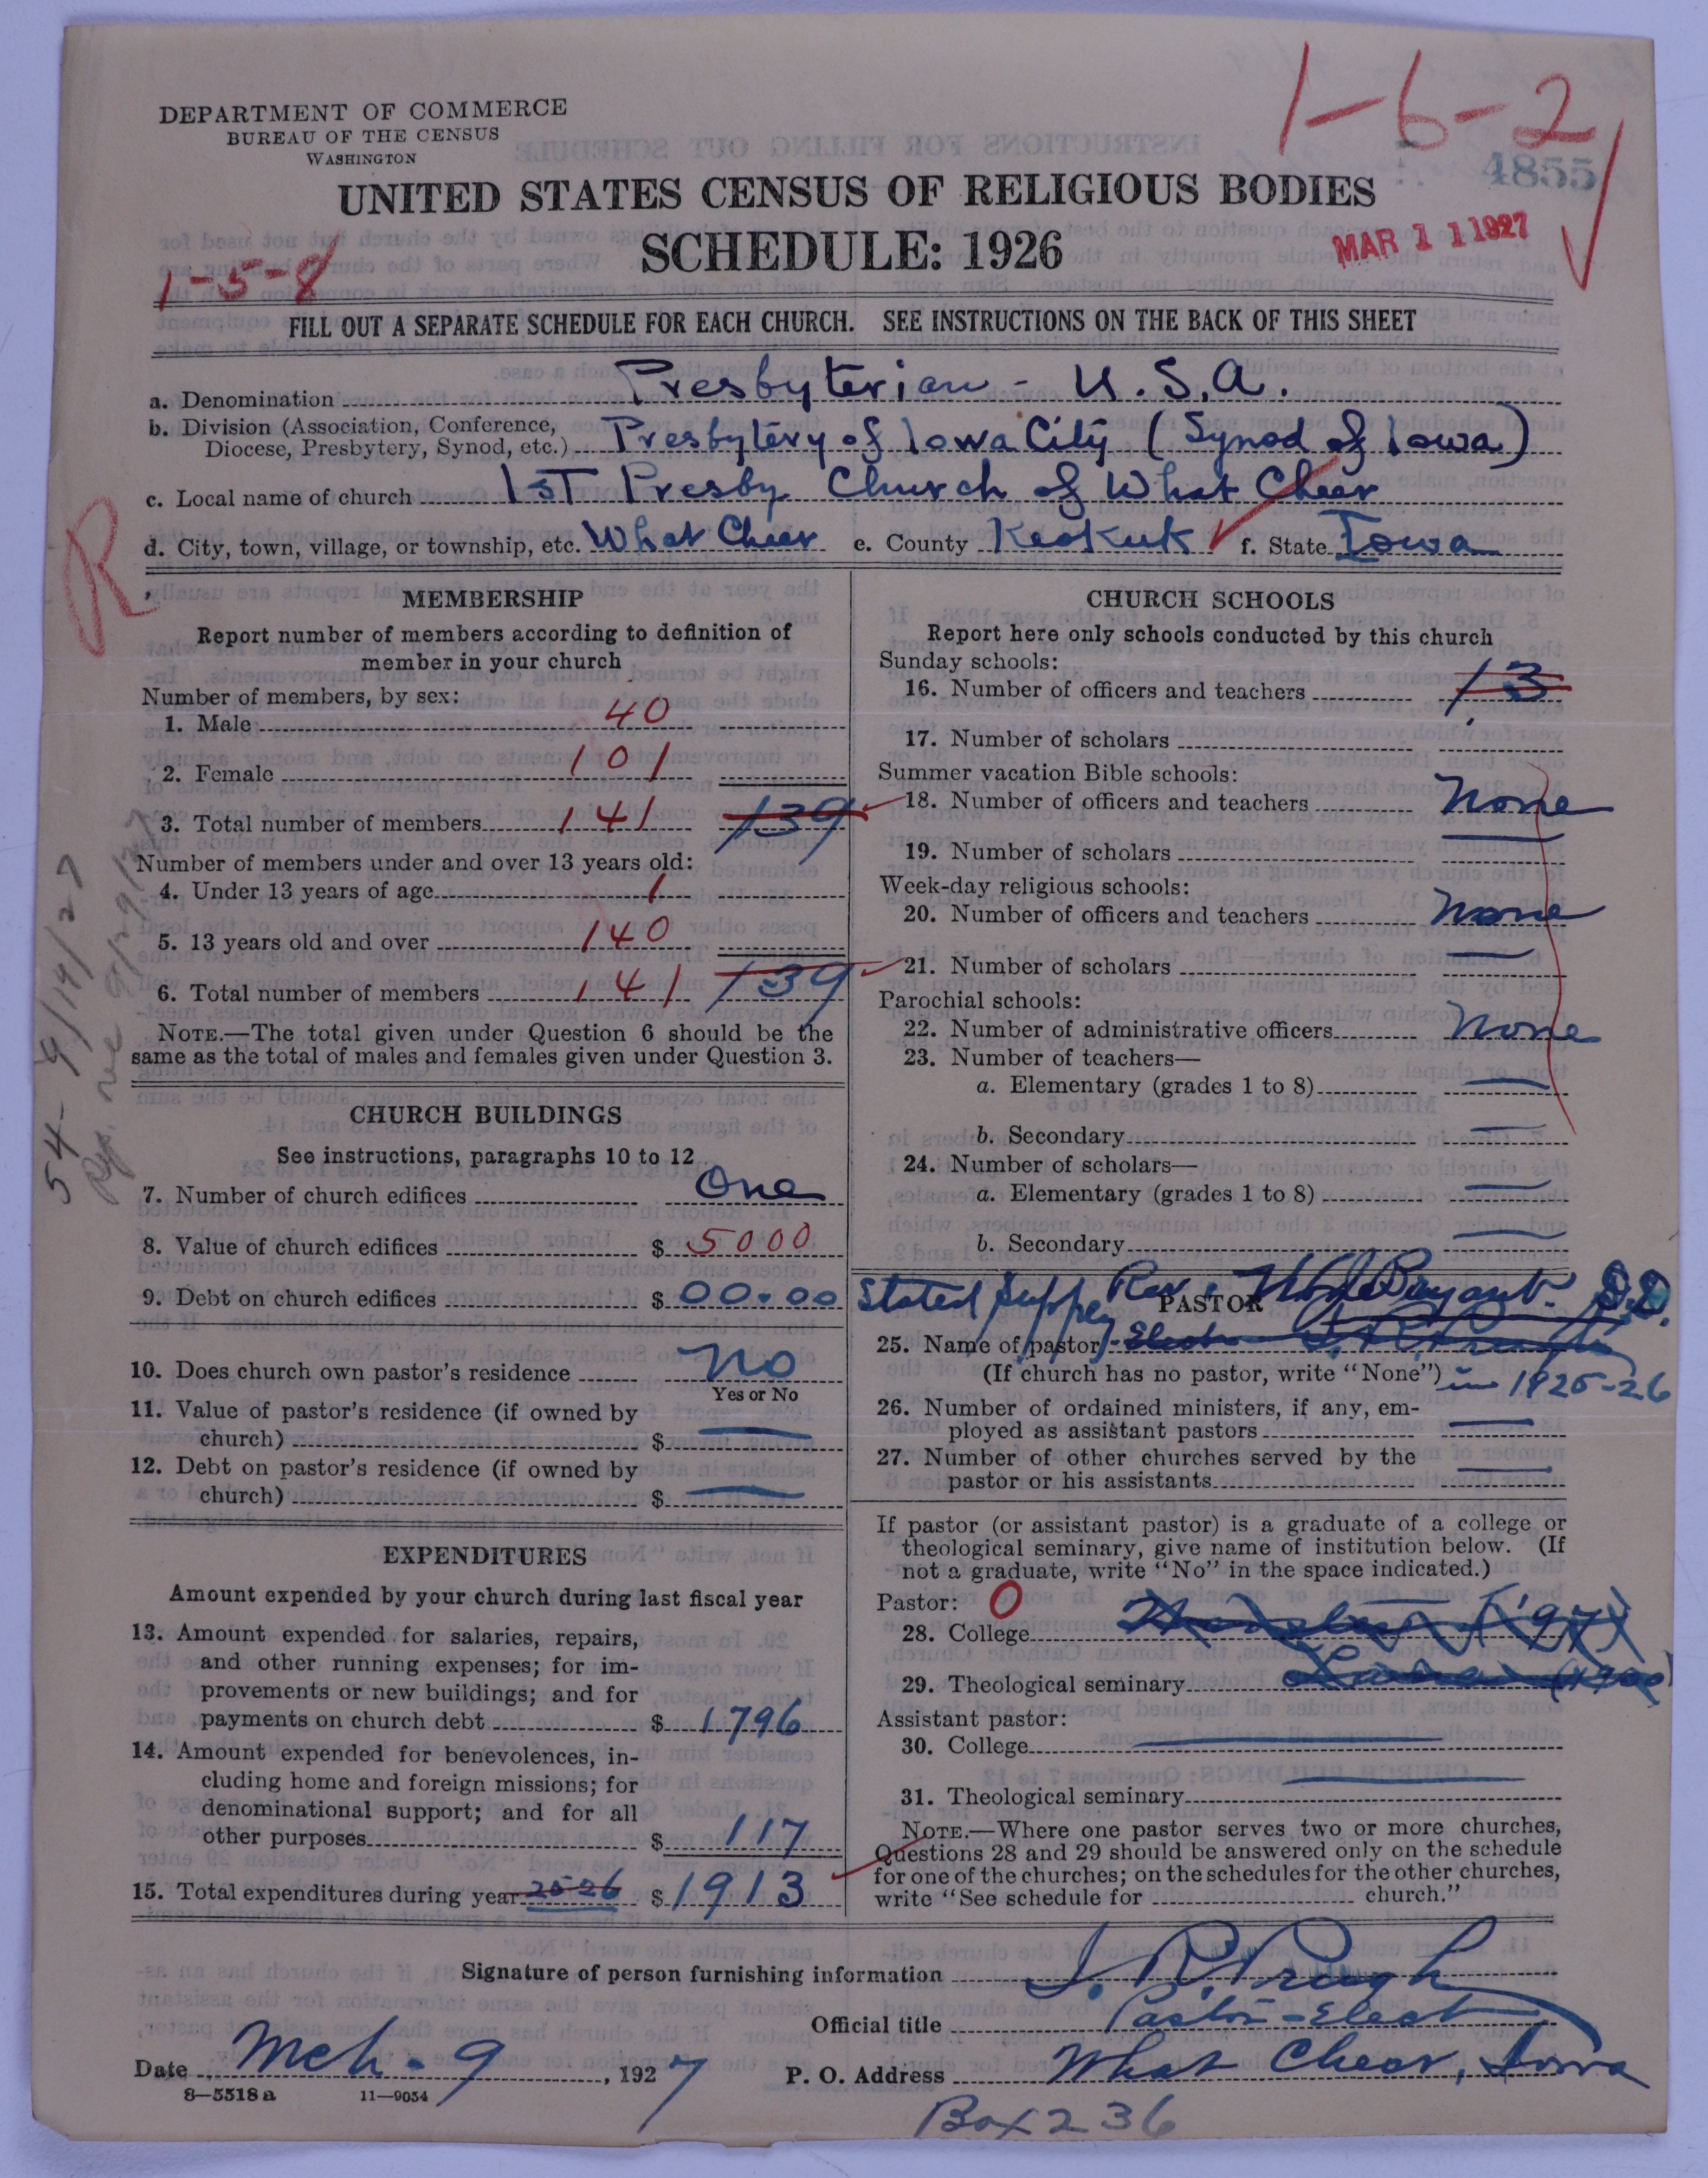 DEPARTMENT OF COMMERCE
BUREAU OF THE CENSUS
WASHINGTON
1-6-2
4855
UNITED STATES CENSUS OF RELIGIOUS BODIES
SCHEDULE: 1926
MAR 11 1927
1-5-8
FILL OUT A SEPARATE SCHEDULE FOR EACH CHURCH. SEE INSTRUCTIONS ON THE BACK OF THIS SHEET
a. Denomination Presbyterian - U.S.A.
b. Division (Association, Conference,
Diocese, Presbytery, Synod, etc.) Presbytery of Iowa City (Synod of Iowa)
c. Local name of church 1st Presby Church of What Cheer
d. City, town, village, or township, etc. What Cheer e. County Keokuk f. State Iowa
R
MEMBERSHIP
Report number of members according to definition of
member in your church
Number of members, by sex:
1. Male 40
2. Female 101
3. Total number of members 141 139
Number of members under and over 13 years old:
4. Under 13 years of age 1
5. 13 years old and over 140
6. Total number of members 141 139
NOTE.—The total given under Question 6 should be the
same as the total of males and females given under Question 3.
54- 9/19/27
CHURCH BUILDINGS
See instructions, paragraphs 10 to 12
7. Number of church edifices One
8. Value of church edifices $ 5000
9. Debt on church edifices $ 00.00
10. Does church own pastor's residence No
Yes or No
11. Value of pastor's residence (if owned by
church) $ —
12. Debt on pastor's residence (if owned by
church) $ —
EXPENDITURES
Amount expended by your church during last fiscal year
13. Amount expended for salaries, repairs,
and other running expenses; for im-
provements or new buildings; and for
payments on church debt $ 1796
14. Amount expended for benevolences, in-
cluding home and foreign missions; for
denominational support; and for all
other purposes $ 117
15. Total expenditures during year 25-26 $ 1913
CHURCH SCHOOLS
Report here only schools conducted by this church
Sunday schools:
16. Number of officers and teachers 13
17. Number of scholars
Summer vacation Bible schools:
18. Number of officers and teachers None
19. Number of scholars
Week-day religious schools:
20. Number of officers and teachers None
21. Number of scholars —
Parochial schools:
22. Number of administrative officers None
23. Number of teachers—
a. Elementary (grades 1 to 8) —
b. Secondary —
24. Number of scholars—
a. Elementary (grades 1 to 8) —
b. Secondary —
Stated Supply Rev. Bryant D.D.
PASTOR
25. Name of pastor Elect J. R. Prugh
(If church has no pastor, write "None") in 1925-26
26. Number of ordained ministers, if any, em-
ployed as assistant pastors —
27. Number of other churches served by the
pastor or his assistants —
If pastor (or assistant pastor) is a graduate of a college or
theological seminary, give name of institution below. (If
not a graduate, write "No" in the space indicated.)
Pastor: O
28. College ('97)
29. Theological seminary (1900)
Assistant pastor:
30. College —
31. Theological seminary —
NOTE.—Where one pastor serves two or more churches,
Questions 28 and 29 should be answered only on the schedule
for one of the churches; on the schedules for the other churches,
write "See schedule for church."
Signature of person furnishing information J. R. Prugh
Official title Pastor-Elect
Date Mch. 9, 1927 P. O. Address What Cheer, Iowa
8—5518a 11—9054
Box 236